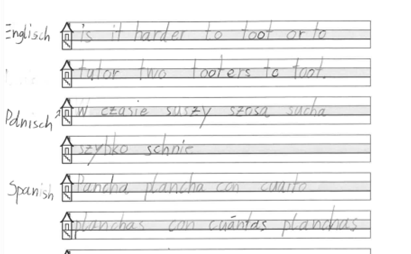 Englisch is it harder to toot or to
tutor two tooters to toot.
Polnisch W czasie suszy szosa sucha
szybko schnie
Spanish Pancha plancha con cuatro
planchas con cuántas planchas